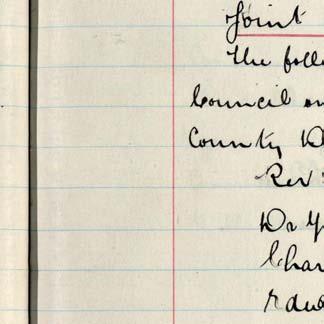 Joint
The foll
Council on
County D
Rev
Dr Y
Char
Edw